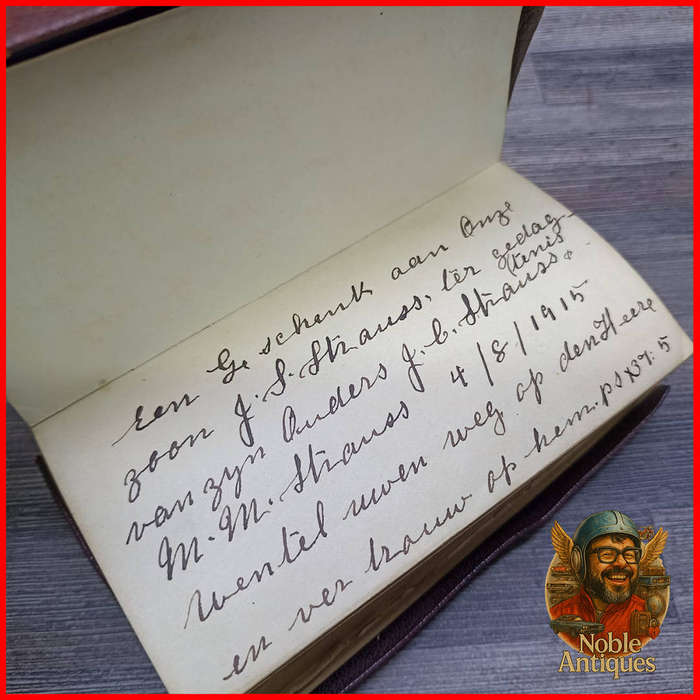 Een Geschenk aan Onze
zoon J. S. Strauss, ter gedag-
tenis
van zyn Ouders J. C. Strauss &
M. M. Strauss 4/8/1915
Wentel uwen weg op den Heere
en ver trouw op hem. ps 37: 5
Noble
Antiques